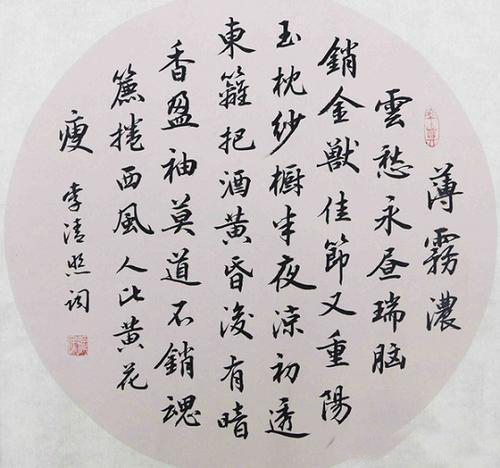 薄霧濃
雲愁永昼瑞脳
銷金獣佳節又重陽
玉枕紗橱半夜涼初透
東籬把酒黄昏後有暗
香盈袖莫道不銷魂
簾捲西風人比黄花
瘦
李清照詞